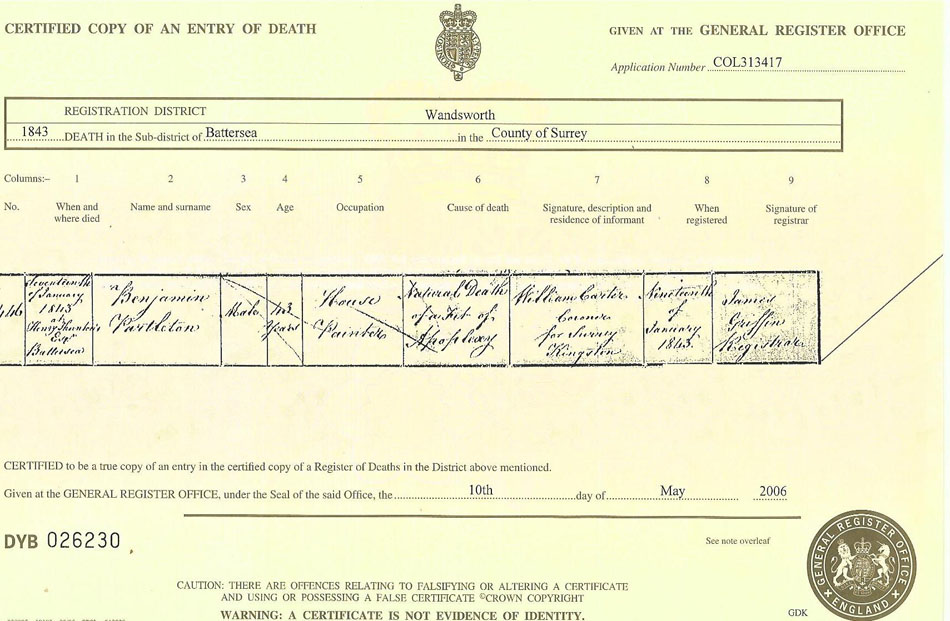 CERTIFIED COPY OF AN ENTRY OF DEATH
GIVEN AT THE GENERAL REGISTER OFFICE
Application Number COL313417
REGISTRATION DISTRICT Wandsworth
1843 DEATH in the Sub-district of Battersea in the County of Surrey
Columns:– 1 2 3 4 5 6 7 8 9
No. When and where died Name and surname Sex Age Occupation Cause of death Signature, description and residence of informant When registered Signature of registrar
Seventeenth of January 1843 at Esqre Battersea
Benjamin Partleton
Male
43 Years
House Painter
Natural Death of a Fit of Apoplexy
William Carter Coroner for Surrey Kingston
Nineteenth of January 1843.
James Griffin Registrar
CERTIFIED to be a true copy of an entry in the certified copy of a Register of Deaths in the District above mentioned.
Given at the GENERAL REGISTER OFFICE, under the Seal of the said Office, the 10th day of May 2006
DYB 026230
See note overleaf
CAUTION: THERE ARE OFFENCES RELATING TO FALSIFYING OR ALTERING A CERTIFICATE
AND USING OR POSSESSING A FALSE CERTIFICATE ©CROWN COPYRIGHT
WARNING: A CERTIFICATE IS NOT EVIDENCE OF IDENTITY.
GDK
GENERAL REGISTER OFFICE
ENGLAND